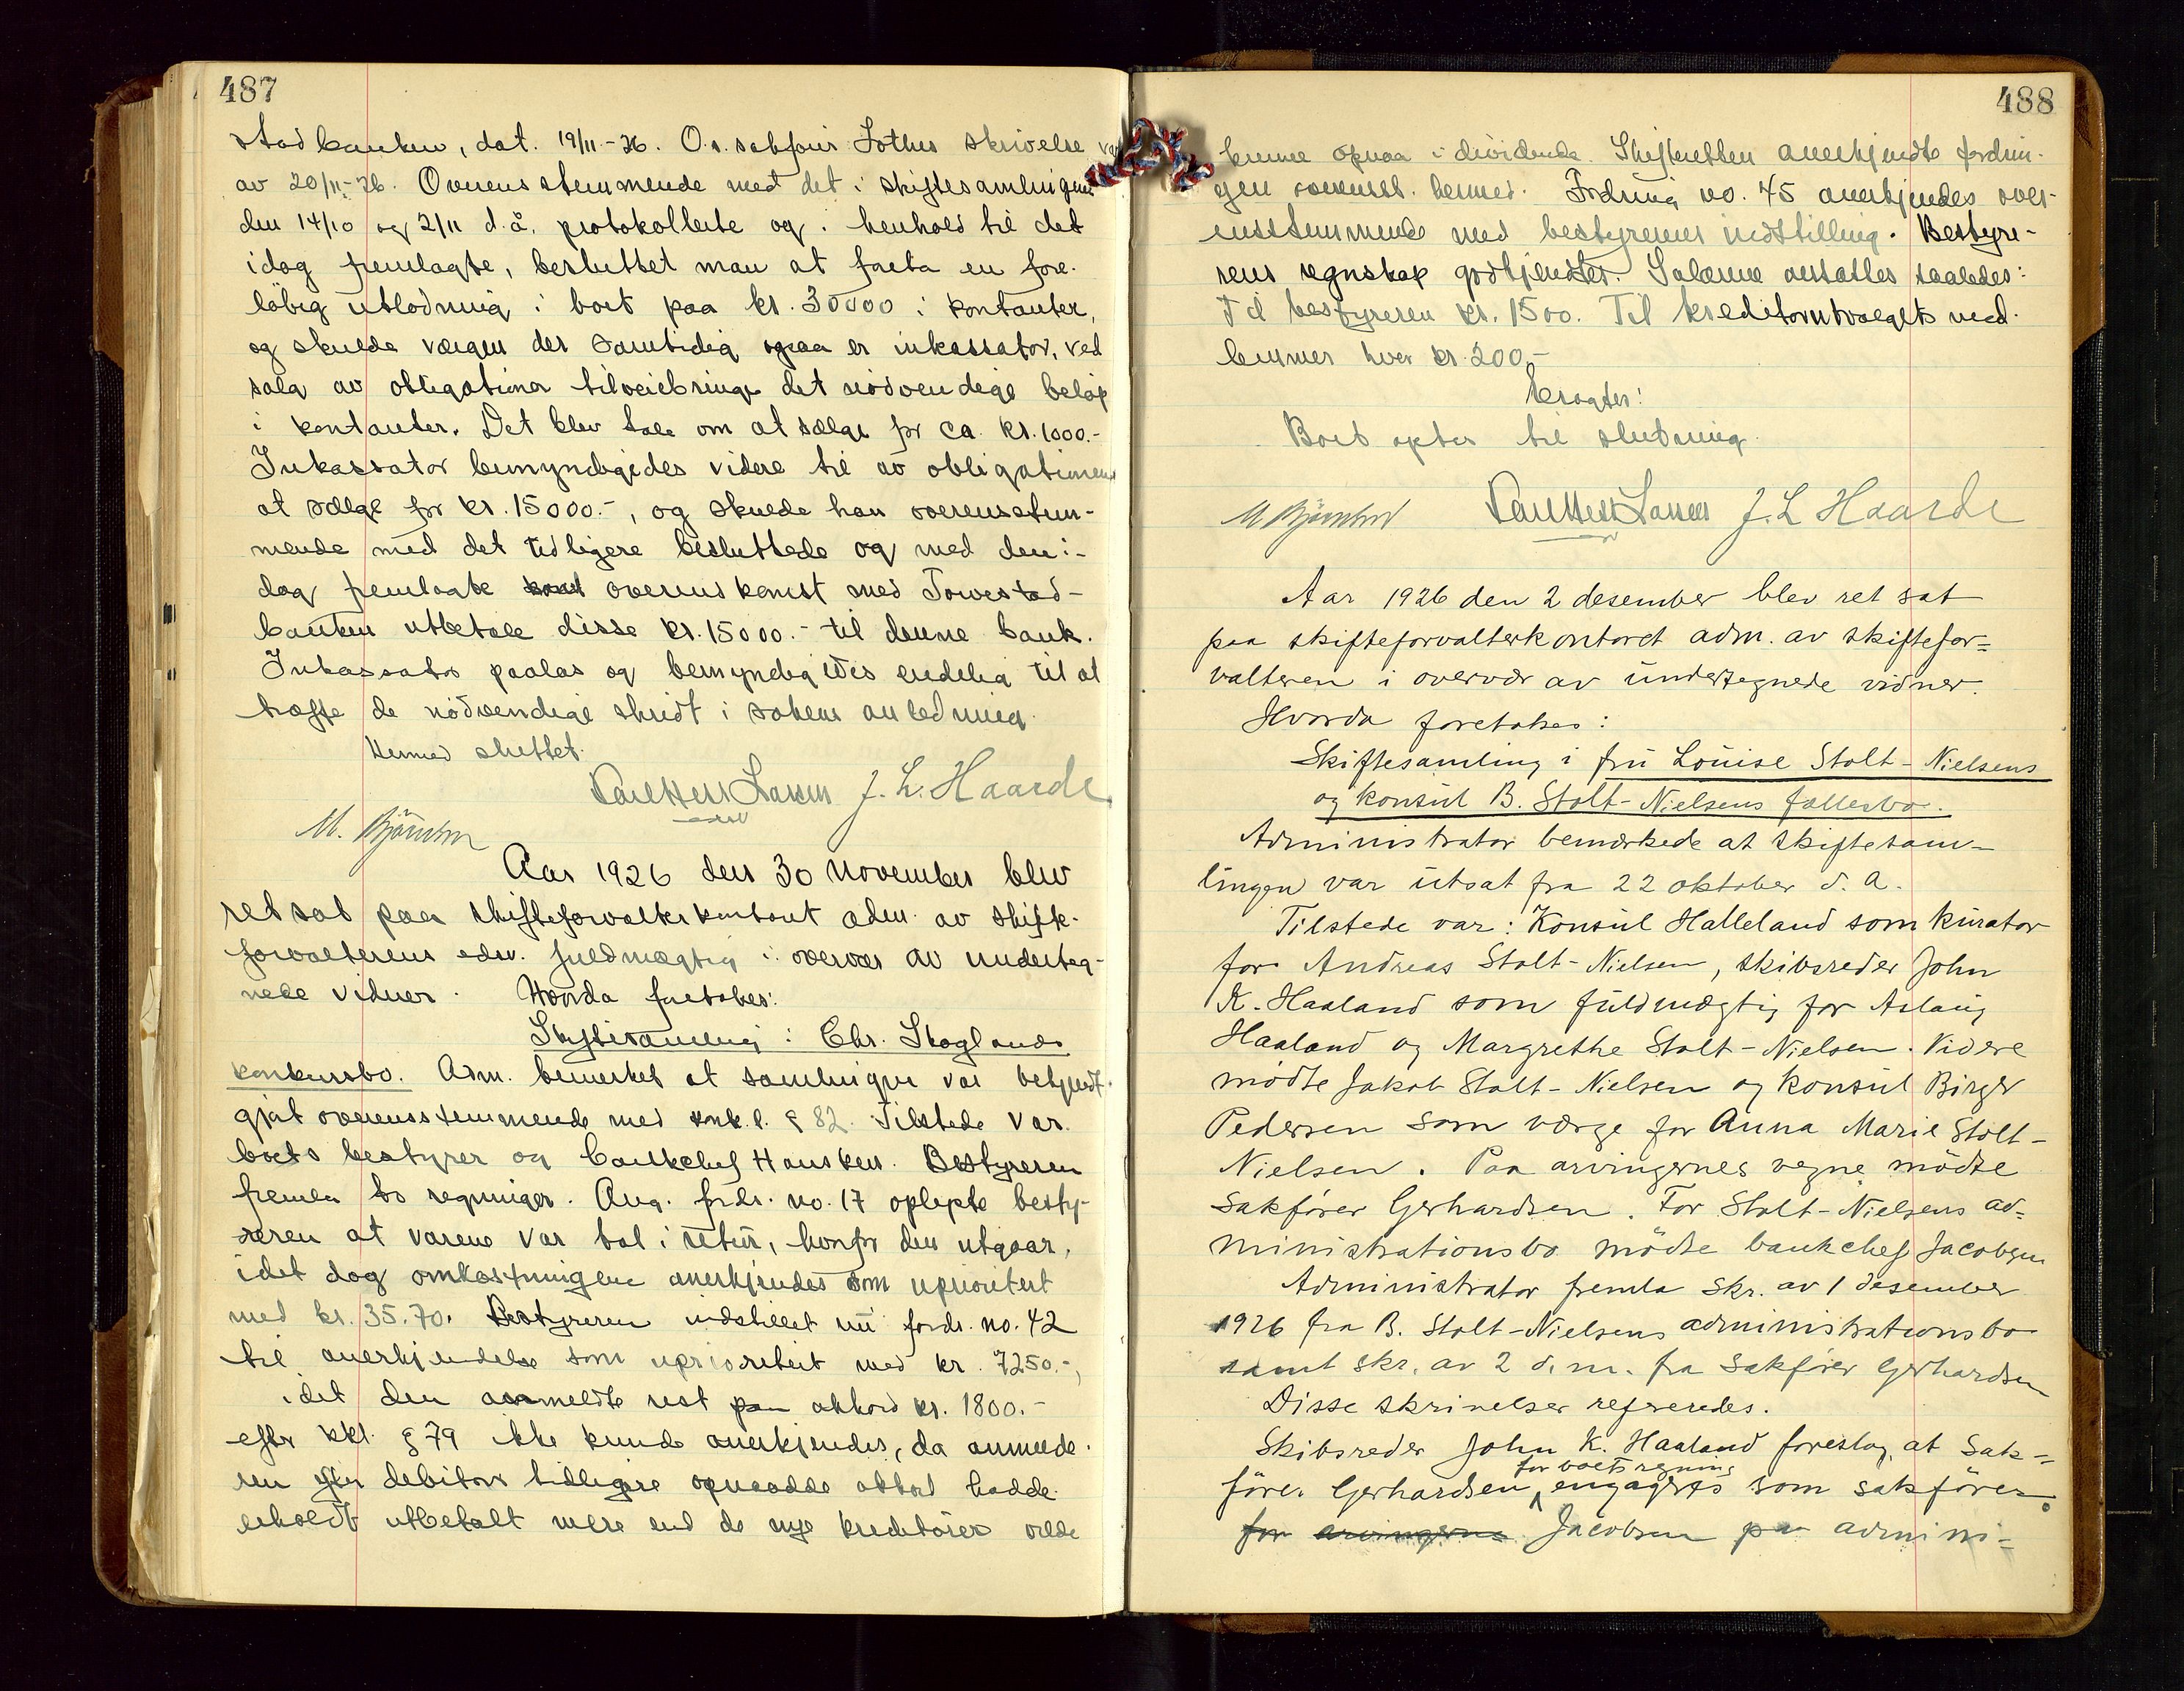 487
stadbanken, dat. 19/11-26. O.r.sakförer Lothes skrivelse var
av 20/11-26. Overensstemmende med det i skiftesamlingene
den 14/10 og 2/11 d.å. protokollerte og i henhold til det
idag fremlagte, besluttet man at foreta en fore-
löbig utlodning i boet paa kr. 30000 i kontanter,
og skulde værgen der samtidig ogsaa er inkassator, ved
salg av obligationer tilveiebringe det nödvendige belöp
i kontanter. Det blev tale om at sælge for ca. kr. 1000.-
Inkassator bemyndigedes videre til av obligationene
at sælge for kr. 15000.-, og skulde han overensstem-
mende med det tidligere besluttede og med den i-
dag fremlagte overenskomst med Torvestad-
banken utbetale disse kr. 15000.- til denne bank.
Inkassator paalas og bemyndigedes endelig til at
træffe de nödvendige skridt i sakens anledning.
Hermed sluttet.
J. L. Haarde
M.
Aar 1926 den 30 november blev
ret sat paa skifteforvalterkontoret adm. av skifte-
forvalterens edsv. fuldmægtig i overvær av underteg-
nede vidner. Hvorda foretokes:
Skiftesamling i Chr. Skoglands
konkursbo. Adm. bemerket at samlingen var bekjendt-
gjort overensstemmende med konk.l. § 82. Tilstede var
boets bestyrer og bankchef Hansken. Bestyreren
fremla to regninger. Ang. fordr. no. 17 oplyste besty-
reren at varene var tat i retur, hvorfor den utgaar,
idet dog omkostningene anerkjendes som uprioritert
med kr. 35.70. Bestyreren indstillet nu fordr. no. 42
til anerkjendelse som uprioritert med kr. 7250.-,
idet den anmeldte rest paa akkord kr. 1800.-
efter kkl. § 79 ikke kunde anerkjendes, da anmelde-
ren efter debitors tidligere opnaadde akkord hadde
erholdt utbetalt mere end de nye kreditorer vilde
488
kunne opnaa i dividende. Skifteretten anerkjendte fordrin-
gen overenst. hermed. Fordring no. 45 anerkjendes over-
ensstemmende med bestyrerens indstilling. Bestyre-
rens regnskap godkjendtes. Salærene ansattes saaledes:
Til bestyreren kr. 1500. Til kreditorutvalgets med-
lemmer hver kr. 200,-
Boet optas til slutning.
M J. L Haarde
Aar 1926 den 2 desember blev ret sat
paa skifteforvalterkontoret adm. av skiftefor=
valteren i overvær av undertegnede vidner.
Hvorda foretokes:
Skiftesamling i fru Louise Stolt-Nielsens
og konsul B. Stolt-Nielsens fællesbo.
Administrator bemærkede at skiftesam-
lingen var utsat fra 22 oktober d. a.
Tilstede var: Konsul Halleland som kurator
for Andreas Stolt-Nielsen, skibsreder John
K. Haaland som fuldmægtig for Aslaug
Haaland og Margrethe Stolt-Nielsen. Videre
mödte Jakob Stolt-Nielsen og konsul Birger
Pedersen som værge for Anna Marie Stolt-
Nielsen. Paa arvingernes vegne mödte
sakförer Gerhardsen. For Stolt-Nielsens ad=
ministrationsbo mödte bankchef Jacobsen
Administrator fremla skr. av 1 desember
1926 fra B. Stolt-Nielsens administrationsbo
samt skr. av 2 d.m. fra sakförer Gerhardsen
Disse skrivelser refereredes.
Skibsreder John K. Haaland foreslog at sak=
for boets regning
förer Gerhardsen engageres som sakförer.
for arvingerne Jacobsen paa admini=